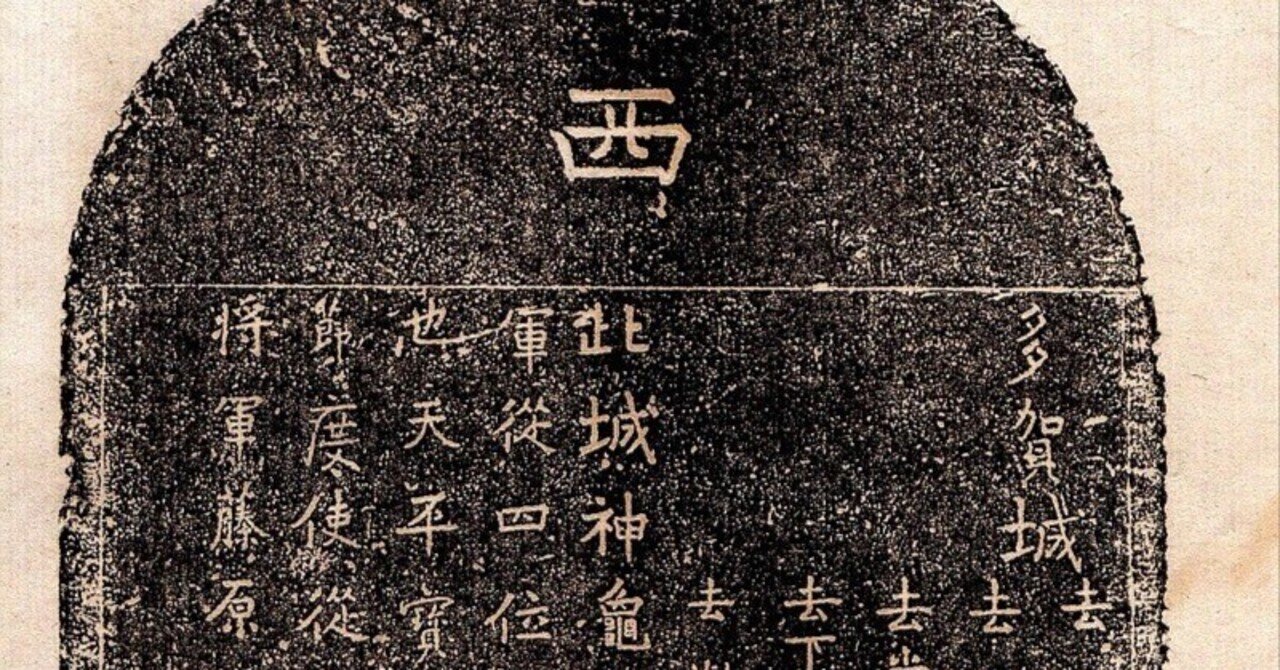 西
多賀城
去
去
去
去
去
此城神龜
軍從四位
也天平寶
節度使從
将軍藤原